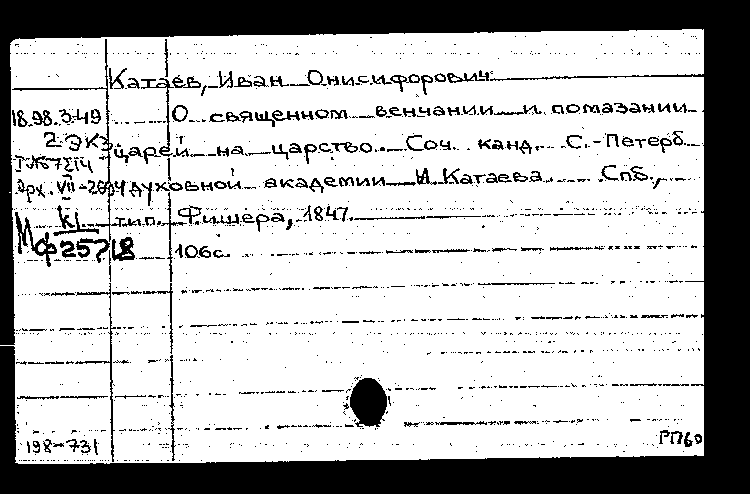 Катаев, Иван Онисифорович
18.98.3.49 О священном венчании и помазании
2 экз. царей на царство. Соч. канд. С.-Петерб.
духовной академии И. Катаева. Спб.,
тип. Фишера, 1847.
Мф 25718 106с.
198-731